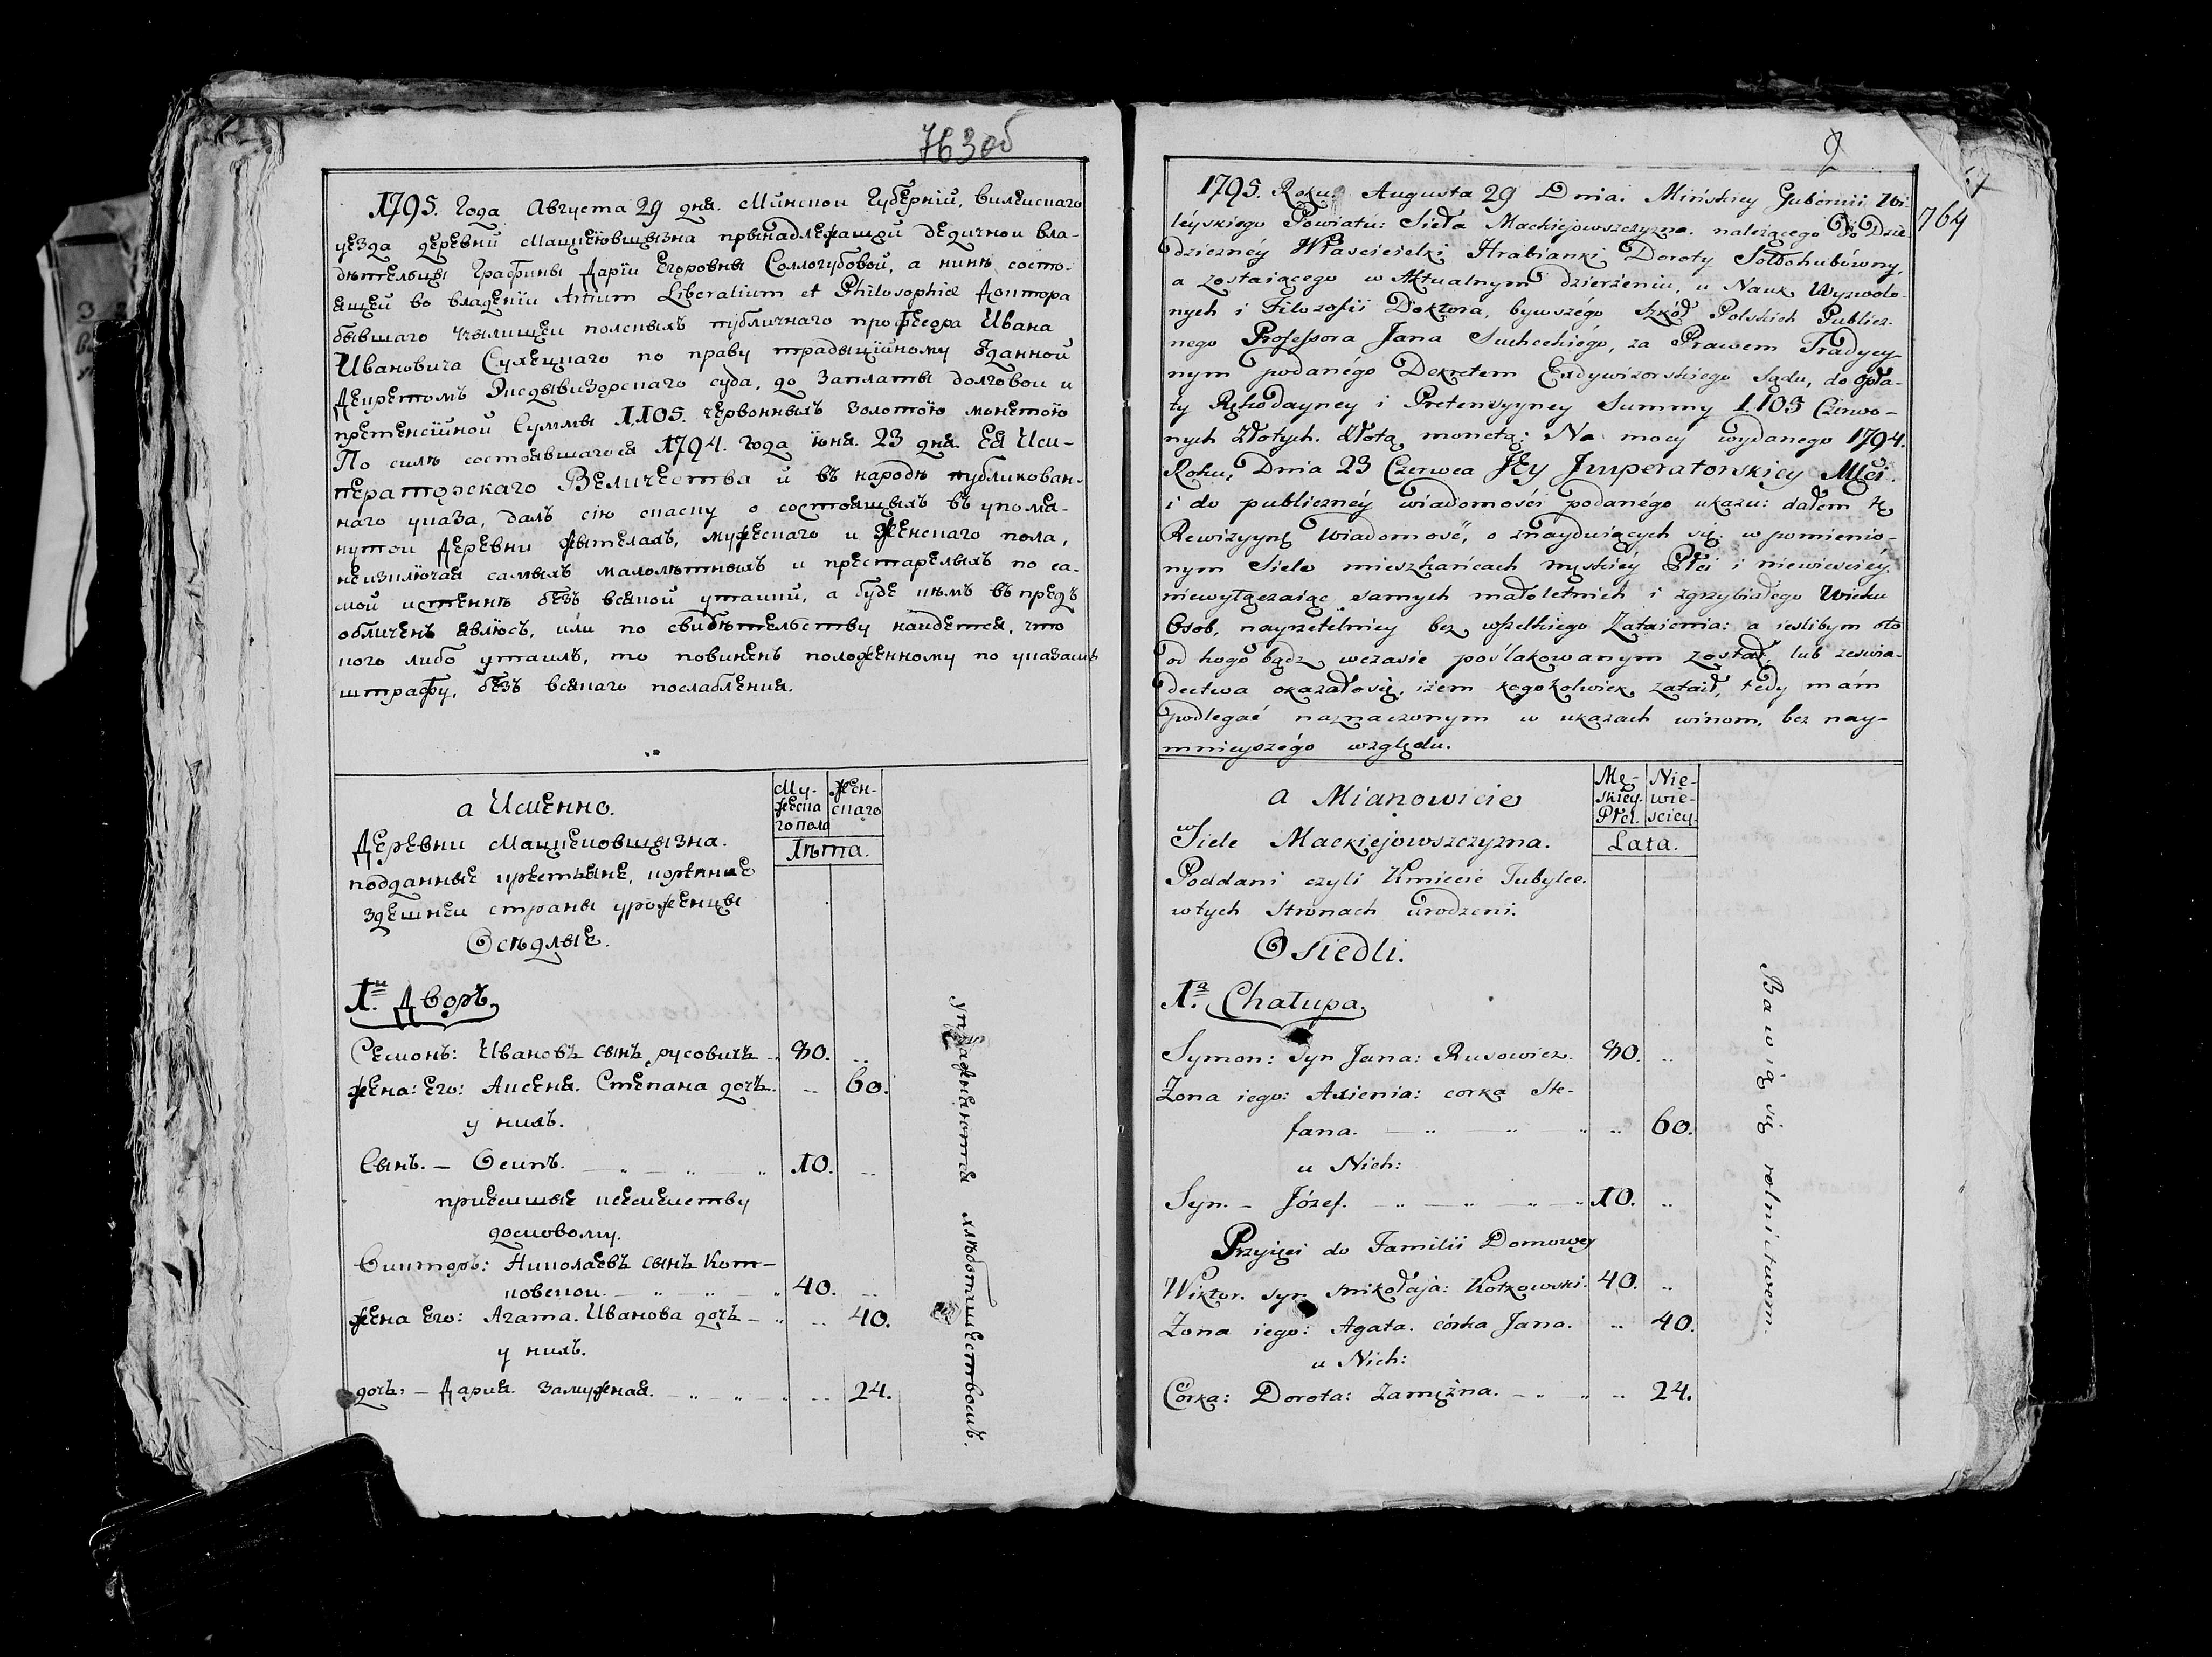 763 об
1795. Года Августа 29 дня. Минской Губерній, вилейскаго
уезда деревни Мацкеювщызна прынадлежащей дедичной вла-
дѣтельцы Графины Даріи Егоровны Соллогубовой, а нинѣ состо-
ящей во владеніи Artium Liberalium et Philosophiæ Доктора
бывшаго училищеи полскихъ публичнаго професора Ивана
Ивановича Сухецкаго по праву традыцыйному ѿданной
Декретомъ Эксдывизорскаго суда, до заплаты долговой и
претенсійной Суммы 1,105. червонныхъ золотою монетою
По силѣ состоявшагося 1794. года іюня. 23 дня. Ея Им-
ператорскаго Величества и въ народѣ публикован-
наго указа, далъ сію скаску о состоящыхъ въ упомя-
нутой Деревни жытелахъ, мужескаго и женскаго пола,
неизключая самыхъ малолѣтныхъ и престарелыхъ по са-
мой истеннѣ безъ всякой утайки, а буде кѣмъ въ предъ
обличенъ явлюсь, или по свидѣтельству найдется, что
кого либо утаилъ, то повиненъ положенному по указамъ
штрафу, безъ всякаго послабления.
а Именно.
Му-
жеска
го пола
Жен-
скаго
Лѣта.
Деревни Мацкеювщызна.
подданные крестьяне, корѣнные
здешней страны уроженцы
Осѣдлые.
1й. Дворъ,
Семонъ: Ивановъ сынъ русовичъ .. 80. ..
жена: его: Аксеня. Степана дочь. .. 60.
у нихъ.
Сынъ. – Осипъ. — .. — .. — .. 10. ..
приемшые ксемеиству
домовому.
Виктаръ: Николаевъ сынъ Кот-
ковской. — .. — .. — .. 40. ..
жена Его: Агата. Иванова дочь – .. .. 40.
у нихъ.
дочь: – Дария. Замужная. — .. — .. — .. .. 24.
упражняются хлѣбопашествомъ.
2
67
764
1795. Roku. Augusta 29 Dnia. Mińskiey Gubernii Wi-
léyskiego Powiatu: Sieła Mackiejowszczyzna. należącego Do Dzie-
dzicznéy Własćicielki Hrabianki Doroty Sołłohubówny,
a zostaiącego w Aktualnym dzierżeniu, u Nauk Wyzwolo-
nych i Filozofii Doktora, bywszégo Szkół Polskich Publicz-
nego Professora Jana Sucheckiégo, za Prawem Tradycy-
nym podanégo Dekretem Exdywizorskiego Sądu, do opła-
ty Rękodayney i Pretensyyney Summy 1.105 Czerwo-
nych Złotych. złotą monetą: Na mocy wydanego 1794.
Roku; Dnia 23 Czerwca JEy Jmperatorskiey Mći.
i do publicznéy wiadomośći podanégo ukazu: dałem tę
Rewizyyną Wiadomosć, o znayduiących się w pomienio-
nym Siele mieszkańcach męskiéy Płći i niewiesciéy.
niewyłączaiąc samych małoletnich i zgrzybiałego Wieku
Osob, nayrzetelniey bez wszelkiego Zataienia: a iesliby­m oto
od kogo bądz wczasie poślakowanym został, lub zeswia-
dectwa okazałosię, iżem kogokolwiek zataił, tedy mám
podlegać naznaczonym w ukazach winom, bez nay-
mnieyszégo względu.
a Mianowicie
Mę-
skiey.
Płci.
Nie-
wie-
sciey.
Lata.
w Siele Mackiejowszczyzna.
Poddani czyli Kmiecie Tubylce.
wtych Stronach urodzeni.
Osiedli.
1a. Chałupa,
Symon: Syn Jana: Rusowicz. 80. ..
Żona iego: Axienia: corka Ste-
fana. — .. — .. — .. .. 60.
u Nich:
Syn. – Józef. — .. — .. — .. 10. ..
Przyięci do Familii Domowey
Wiktor. syn mikołaja: Kotkowski. 40. ..
Żona iego: Agata. córka Jana. .. 40.
u Nich:
Córka: Dorota: zamężna. — .. — .. .. 24.
Bawią się rolnictwem.